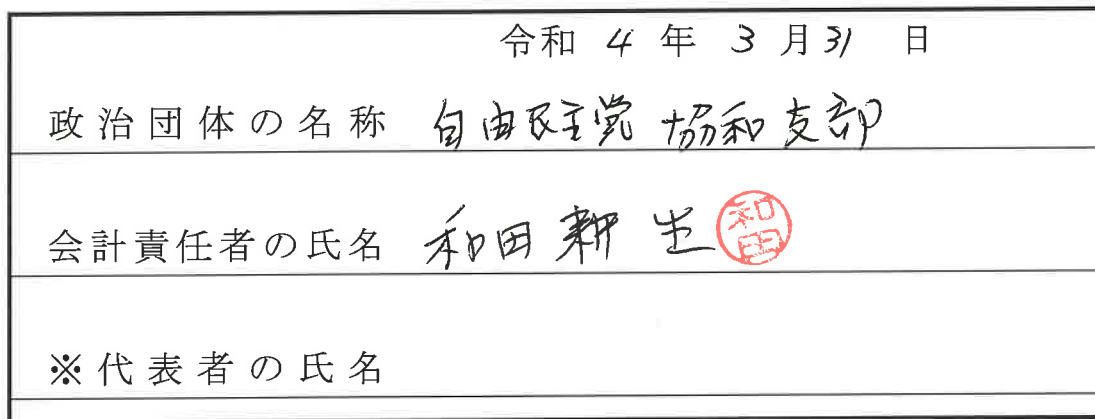 令和 4 年 3 月 31 日
政治団体の名称 自由民主党 協和支部
会計責任者の氏名 和田 耕生 和田
※代表者の氏名